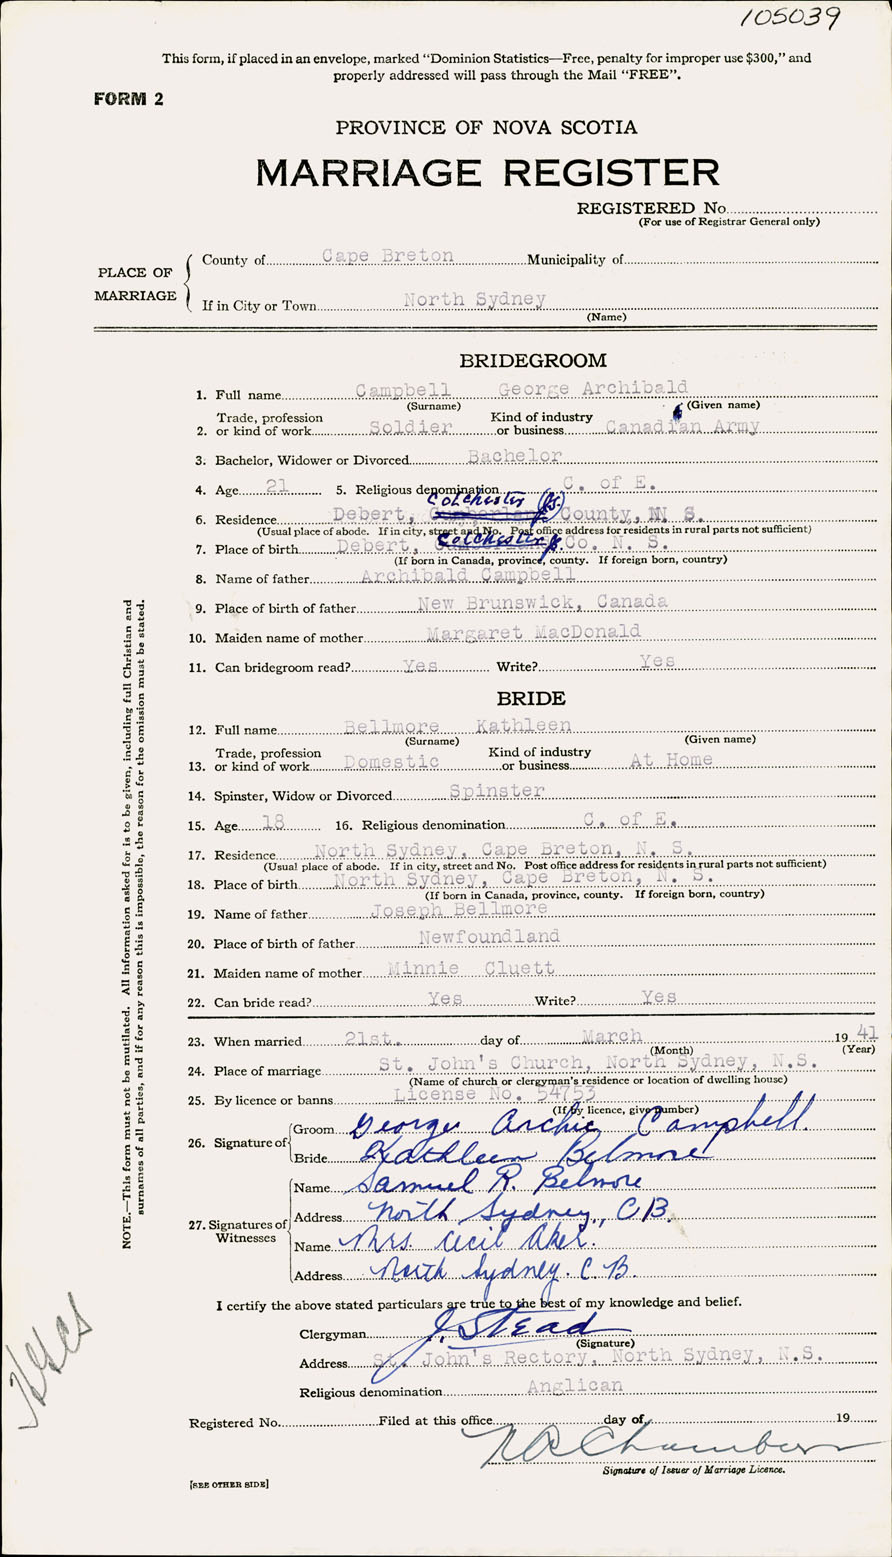 105039
This form, if placed in an envelope, marked "Dominion Statistics—Free, penalty for improper use $300," and
properly addressed will pass through the Mail "FREE".
FORM 2
PROVINCE OF NOVA SCOTIA
MARRIAGE REGISTER
REGISTERED No.
(For use of Registrar General only)
PLACE OF MARRIAGE
County of Cape Breton Municipality of
If in City or Town North Sydney
(Name)
BRIDEGROOM
1. Full name Campbell George Archibald
(Surname) (Given name)
2. Trade, profession or kind of work Soldier Kind of industry or business Canadian Army
3. Bachelor, Widower or Divorced Bachelor
4. Age 21 5. Religious denomination C. of E.
Colchester
6. Residence Debert, Cumberland County, N. S.
(Usual place of abode. If in city, street and No. Post office address for residents in rural parts not sufficient)
Colchester
7. Place of birth Debert, Cumberland Co. N. S.
(If born in Canada, province, county. If foreign born, country)
8. Name of father Archibald Campbell
9. Place of birth of father New Brunswick, Canada
10. Maiden name of mother Margaret MacDonald
11. Can bridegroom read? Yes Write? Yes
BRIDE
12. Full name Bellmore Kathleen
(Surname) (Given name)
13. Trade, profession or kind of work Domestic Kind of industry or business At Home
14. Spinster, Widow or Divorced Spinster
15. Age 18 16. Religious denomination C. of E.
17. Residence North Sydney, Cape Breton, N. S.
(Usual place of abode. If in city, street and No. Post office address for residents in rural parts not sufficient)
18. Place of birth North Sydney, Cape Breton, N. S.
(If born in Canada, province, county. If foreign born, country)
19. Name of father Joseph Bellmore
20. Place of birth of father Newfoundland
21. Maiden name of mother Minnie Cluett
22. Can bride read? Yes Write? Yes
23. When married 21st. day of March 1941
(Month) (Year)
24. Place of marriage St. John's Church, North Sydney, N.S.
(Name of church or clergyman's residence or location of dwelling house)
25. By licence or banns License No. 54753
(If by licence, give number)
26. Signature of
Groom George Archie Campbell.
Bride Kathleen Belmore
27. Signatures of Witnesses
Name Samuel R. Belmore
Address North Sydney, C.B.
Name Mrs. Cecil Aker.
Address North Sydney. C. B.
I certify the above stated particulars are true to the best of my knowledge and belief.
Clergyman J. Stead
(Signature)
Address St. John's Rectory, North Sydney, N.S.
Religious denomination Anglican
Registered No. Filed at this office day of 19
Chambers
Signature of Issuer of Marriage Licence.
[SEE OTHER SIDE]
NOTE.—This form must not be mutilated. All information asked for is to be given, including full Christian and
surnames of all parties, and if for any reason this is impossible, the reason for the omission must be stated.